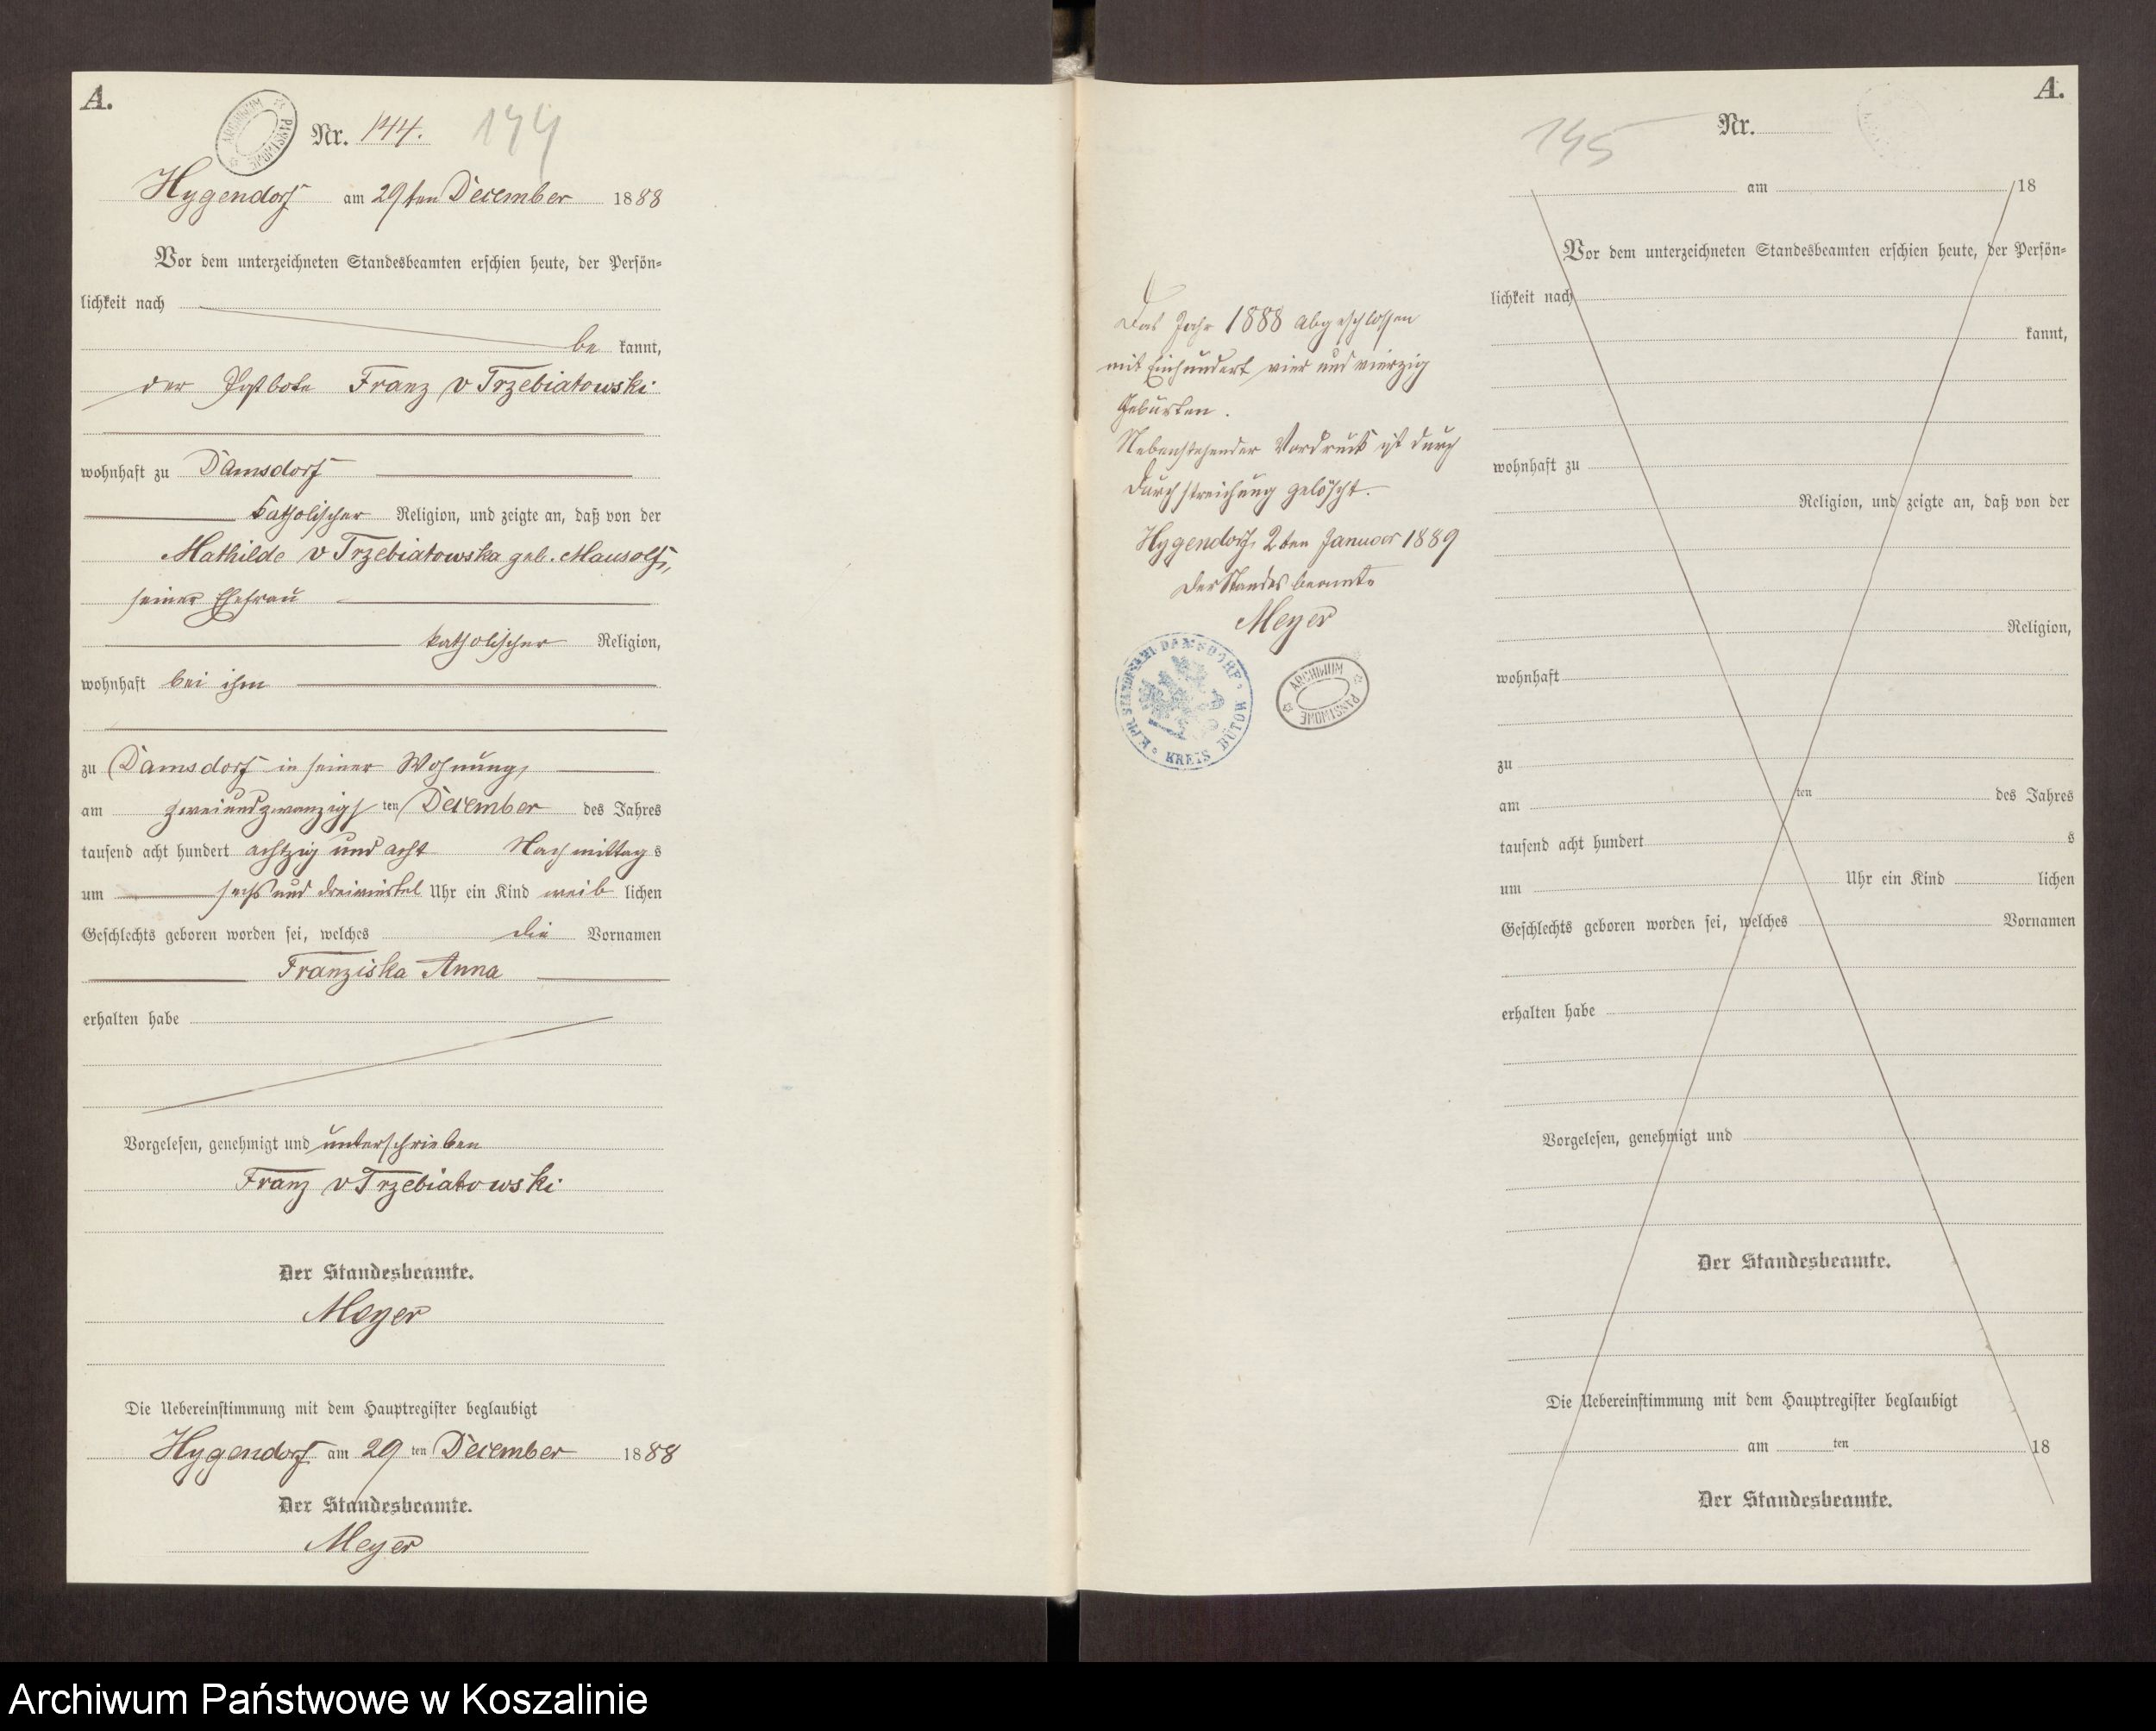 A.
ARCHIWUM PAŃSTWOWE
Nr. 144. 144
Hygendorf am 29ten December 1888
Vor dem unterzeichneten Standesbeamten erschien heute, der Persön-
lichkeit nach
be kannt,
der Postbote Franz v Trzebiatowski
wohnhaft zu Damsdorf
katholischer Religion, und zeigte an, daß von der
Mathilde v Trzebiatowska geb. Mausolf,
seiner Ehefrau
katholischer Religion,
wohnhaft bei ihm
zu Damsdorf in seiner Wohnung,
am zweiundzwanzigsten December des Jahres
tausend acht hundert achtzig und acht Nachmittags
um sechs und dreiviertel Uhr ein Kind weiblichen
Geschlechts geboren worden sei, welches die Vornamen
Franziska Anna
erhalten habe
Vorgelesen, genehmigt und unterschrieben
Franz v Trzebiatowski
Der Standesbeamte.
Meyer
Die Uebereinstimmung mit dem Hauptregister beglaubigt
Hygendorf am 29 ten December 1888
Der Standesbeamte.
Meyer
Das Jahr 1888 abgeschlossen
mit Einhundert vier und vierzig
Geburten.
Nebenstehender Vordruck ist durch
Durchstreichung gelöscht.
Hygendorf, 2ten Januar 1889
Der Standesbeamte
Meyer
K. PR. STANDESAMT DAMSDORF. KREIS BÜTOW
ARCHIWUM PAŃSTWOWE
A.
145 Nr.
am 18
Vor dem unterzeichneten Standesbeamten erschien heute, der Persön-
lichkeit nach
kannt,
wohnhaft zu
Religion, und zeigte an, daß von der
Religion,
wohnhaft
zu
am ten des Jahres
tausend acht hundert s
um Uhr ein Kind lichen
Geschlechts geboren worden sei, welches Vornamen
erhalten habe
Vorgelesen, genehmigt und
Der Standesbeamte.
Die Uebereinstimmung mit dem Hauptregister beglaubigt
am ten 18
Der Standesbeamte.
Archiwum Państwowe w Koszalinie